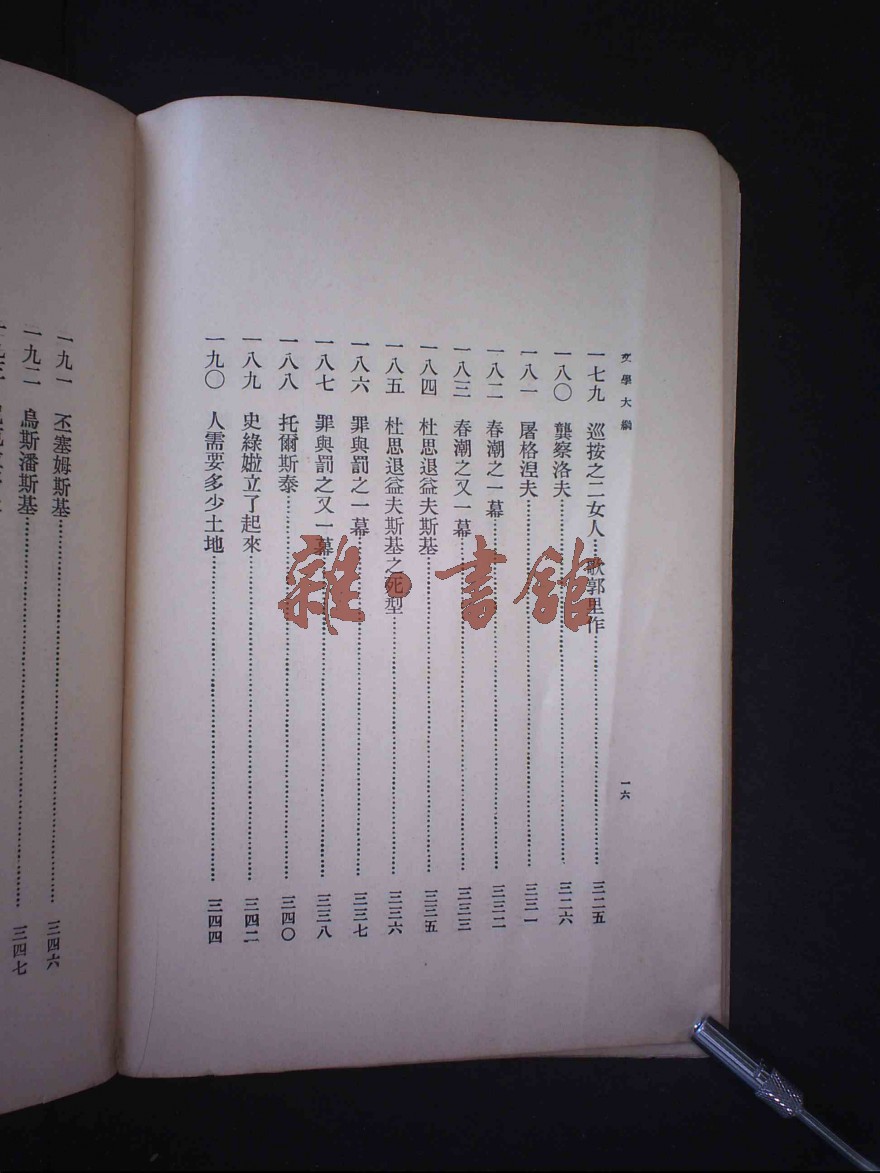 文學大綱
一六
一七九 巡按之二女人…歌郭里作……三二五
一八〇 龔察洛夫……三二六
一八一 屠格涅夫……三三一
一八二 春潮之一幕……三三二
一八三 春潮之又一幕……三三三
一八四 杜思退益夫斯基……三三五
一八五 杜思退益夫斯基之死型……三三六
一八六 罪與罰之一幕……三三七
一八七 罪與罰之又一幕……三三八
一八八 托爾斯泰……三四〇
一八九 史綠㜑立了起來……三四二
一九〇 人需要多少土地……三四四
一九一 丕塞姆斯基……三四六
一九二 烏斯潘斯基……三四七
雜·書館